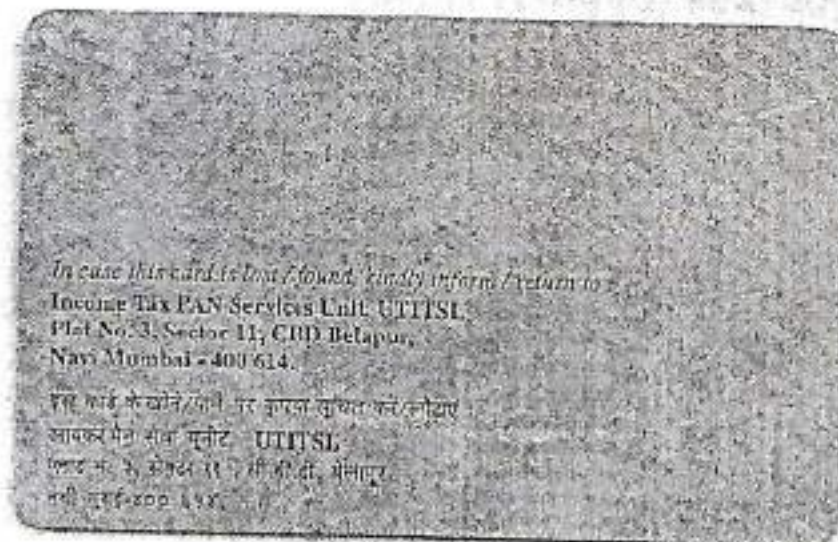 In case this card is lost / found, kindly inform / return to :
Income Tax PAN Services Unit, UTITSL
Plot No. 3, Sector 11, CBD Belapur,
Navi Mumbai - 400 614.
इस कार्ड के खोने/पाने पर कृपया सूचित करें/लौटाएं
आयकर पैन सेवा यूनीट UTITSL
प्लाट नं. ३, सेक्टर ११, सी.बी.डी. बेलापूर,
नवी मुंबई-४०० ६१४.